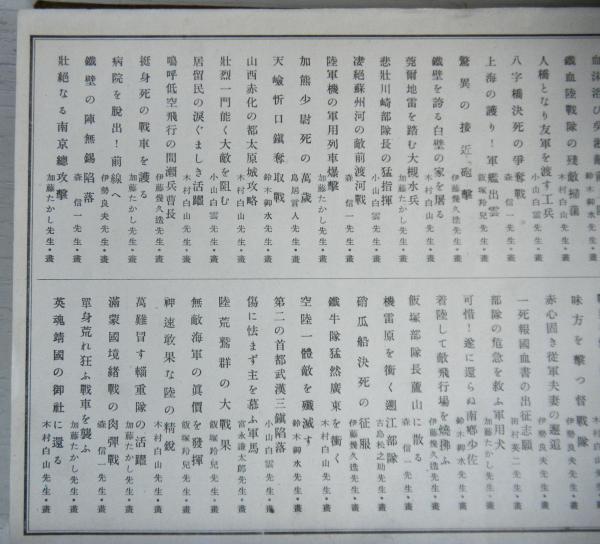 鐵血陸戰隊の殘敵掃蕩
木村白山先生・畫
人橋となり友軍を渡す工兵
小山白雲先生・畫
八字橋決死の爭奪戰
森信一先生・畫
上海の護り！軍艦出雲
飯塚羚兒先生・畫
驚異の接近砲擊
伊藤幾久造先生・畫
鐵壁を誇る白壁の家を屠る
木村白山先生・畫
莞爾地雷を踏む大槻水兵
小山白雲先生・畫
悲壯川崎部隊長の猛指揮
小山白雲先生・畫
凄絕蘇州河の敵前渡河戰
森信一先生・畫
陸軍機の軍用列車爆擊
加藤たかし先生・畫
加熊少尉死の萬歲
島居言人先生・畫
天嶮忻口鎭奪取戰
鈴木御水先生・畫
山西赤化の都太原城攻略
木村白山先生・畫
壯烈一門能く大敵を阻む
小山白雲先生・畫
居留民の淚ぐましき活躍
飯塚羚兒先生・畫
嗚呼低空飛行の間瀨兵曹長
伊藤幾久造先生・畫
挺身死の戰車を護る
加藤たかし先生・畫
病院を脫出！前線へ
伊勢良夫先生・畫
鐵壁の陣無錫陷落
森信一先生・畫
壯絕なる南京總攻擊
加藤たかし先生・畫
味方を擊つ督戰隊
伊勢良夫先生・畫
赤心固き從軍夫妻の邂逅
伊勢良夫先生・畫
一死報國血書の出征志願
田村英二先生・畫
部隊の危急を救ふ軍用犬
加藤たかし先生・畫
可惜！遂に還らぬ南鄕少佐
鈴木御水先生・畫
着陸して敵飛行場を燒拂ふ
伊藤幾久造先生・畫
飯塚部隊長廬山に散る
森信一先生・畫
機雷原を衝く遡江部隊
古島松之助先生・畫
硝瓜船決死の征服
伊藤幾久造先生・畫
鐵牛隊猛然廣東を衝く
木村白山先生・畫
空陸一體敵を殲滅す
鈴木御水先生・畫
第二の首都武漢三鎭陷落
小山白雲先生・畫
傷に怯まず主を慕ふ軍馬
富永謙太郎先生・畫
陸荒鷲群の大戰果
飯塚羚兒先生・畫
無敵海軍の眞價を發揮
飯塚羚兒先生・畫
神速敢果な陸の精銳
木村白山先生・畫
萬難冒す輜重隊の活躍
加藤たかし先生・畫
滿蒙國境緖戰の肉彈戰
森信一先生・畫
單身荒れ狂ふ戰車を襲ふ
加藤たかし先生・畫
英魂靖國の御社に還る
木村白山先生・畫